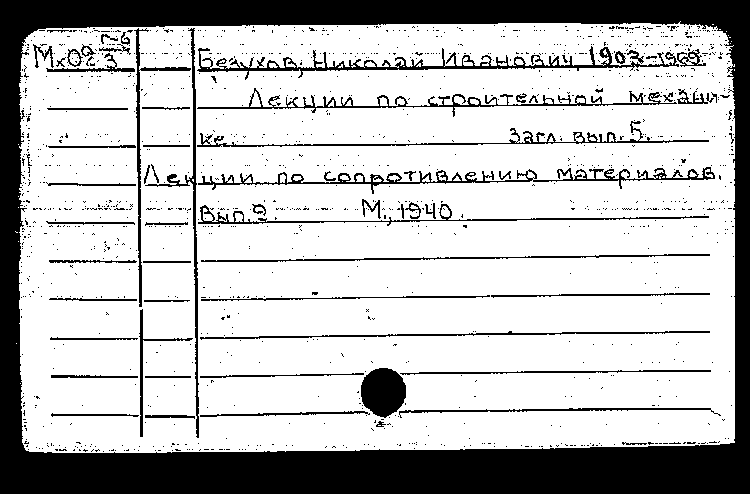 Мх02 г-6/3 Безухов, Николай Иванович, 1903-1969.
Лекции по строительной механи-
ке. Загл. вып. 5.
Лекции по сопротивлению материалов.
Вып. 2. М., 1940.